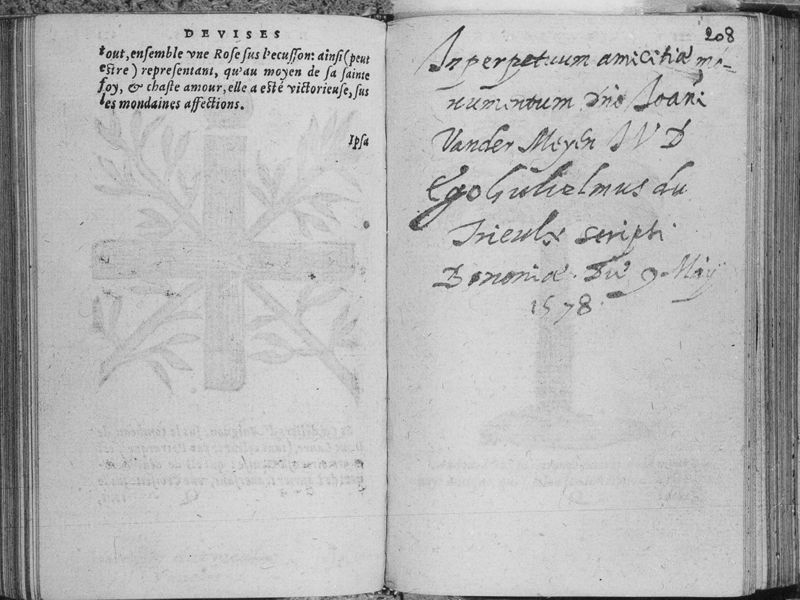 DEVISES
tout, ensemble vne Rose sus l'ecusson: ainsi (peut
estre) representant, qu'au moyen de sa sainte
foy, & chaste amour, elle a esté victorieuse, sus
les mondaines affections.
Ipsa
208
In perpetuum amicitiæ mo-
numentum Dño Joani
Vander Meyen
Ego Gulielmus du
scripsi
Bononiæ Die 9 Maij
1578